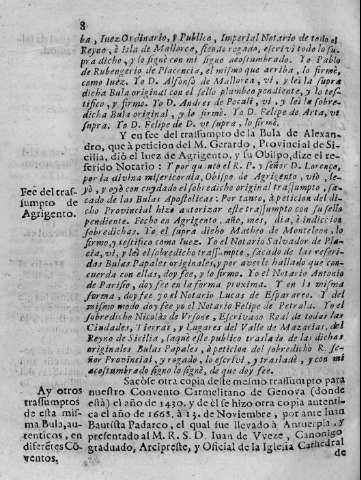 8
ba, Iuez Ordinario, y Publico, Imperial Notario de todo el
Reyno, è Isla de Mallorca, siendo rogado, escrivì todo lo su
pra dicho, y lo signè con mi signo acostumbrado. Yo Pablo
de Rubengerio de Placencia, el mismo que arriba, lo firmè,
como Iuez. Yo D. Alfonso de Mallorca, vi, y leì la supra
dicha Bula original con el sello plumbeo pendiente, y lo tes-
tifico, y firmo. Yo D. Andres de Pocali, vi, y leì la sobre-
dicha Bula original, y lo firmè. Yo D. Felipe de Arta, ve
supra. Yo D. Felipe de D. ve supra, lo firmè.
Y en fee del trassumpto de la Bula de Alexan-
dro, que à peticion del M. Gerardo, Provincial de Si-
cilia, diò el Iuez de Agrigento, y su Obispo, dize el re-
ferido Notario: Y por quanto el R. P. y señor D. Lorenço,
por la divina misericordia, Obispo de Agrigento, viò, le-
yò, y oyò con cuydado el sobredicho original trassumpto, sa-
cado de las Bulas Apostolicas: Por tanto, à peticion del di-
cho Provincial hizo autorizar este trassumpto con su sello
pendiente. Fecho en Agrigento, año, mes, dia, è indiccion
sobredichas. Yo el supra dicho Matheo de Monteleon, lo
firmo, y testifico como Iuez. Yo el Notario Salvador de Pla-
cia, vi, y leì el sobredicho trassumpto, sacado de las referi-
das Bulas Papales originales, y por averle hallado que con
cuerda con ellas, doy fee, y lo firmo. Yo el Notario Antonio
de Parisio, doy fee en la forma proxima. Y en la misma
forma, doy fee yo el Notario Lucas de Esparareo. Y del
mismo modo doy fee yo el Notario Felipe de Petralo. Yo el
sobredicho Nicolàs de Vrsone, Escrivano Real de todas las
Ciudades, Tierras, y Lugares del Valle de Mazarias, del
Reyno de Sicilia, saquè este publico traslado de las dichas
originales Bulas Papales, à peticion del sobredicho R. se-
ñor Provincial, y rogado, lo escriví, y trasladè, y con mi
acostumbrado signo lo signè, de que doy fee.
Fee del tras-
sumpto de
Agrigento.
Sacòse otra copia deste mesmo trassumpto para
nuestro Convento Carmelitano de Genova (donde
està) el año de 1430. y de èl se hizo otra copia autenti-
ca el año de 1665. à 13. de Noviembre, por ante Iuan
Bautista Padarco, el qual fue llevado à Antuerpia, y
presentado al M. R. S. D. Iuan de Vveze, Canonigo
graduado, Arcipreste, y Oficial de la Iglesia Cathedral
Ay otros
trassumptos
de esta mis-
ma Bula, au-
tenticos, en
diferẽtes Cõ-
ventos.
de